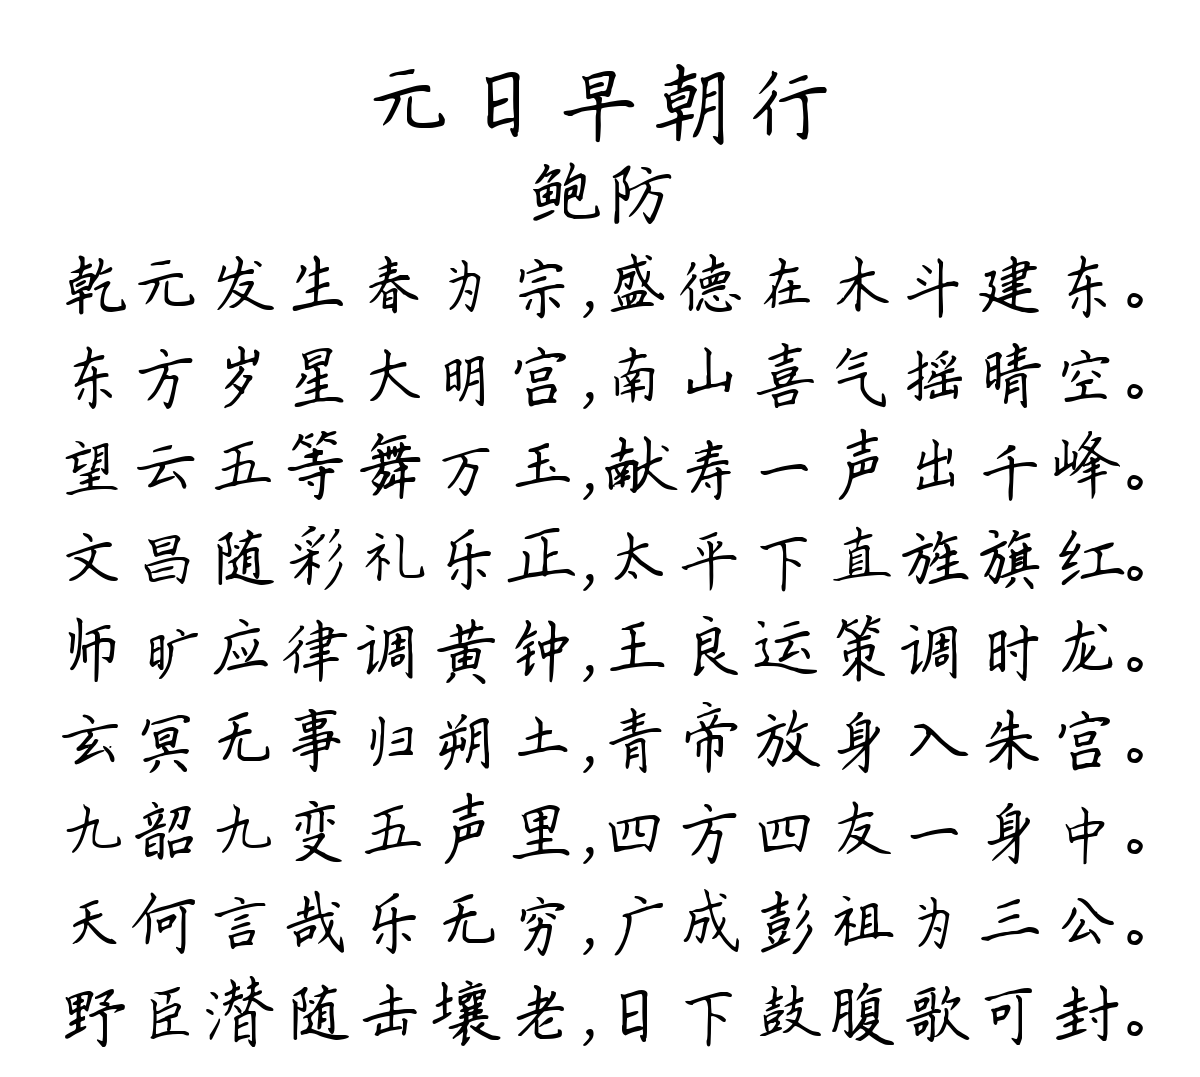 元日早朝行
鲍防
乾元发生春为宗,盛德在木斗建东。
东方岁星大明宫,南山喜气摇晴空。
望云五等舞万玉,献寿一声出千峰。
文昌随彩礼乐正,太平下直旌旗红。
师旷应律调黄钟,王良运策调时龙。
玄冥无事归朔土,青帝放身入朱宫。
九韶九变五声里,四方四友一身中。
天何言哉乐无穷,广成彭祖为三公。
野臣潜随击壤老,日下鼓腹歌可封。